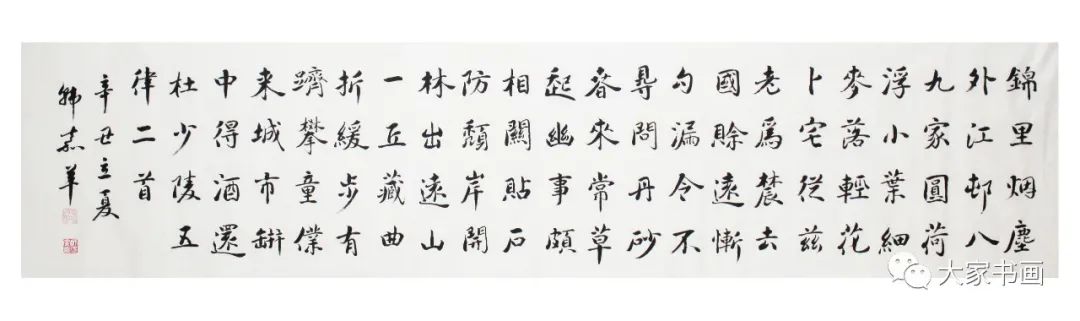 錦里烟塵
外江邨八
九家圓荷
浮小葉細
麥落輕花
卜宅從兹
老爲農去
國賒遠慚
勾漏令不
尋問丹砂
春來常草
起幽事頗
相關貼石
防頽岸開
林出遠山
一丘藏曲
折緩步有
躋攀童僕
来城市缾
中得酒還
杜少陵五
律二首
辛丑立夏
大家书画